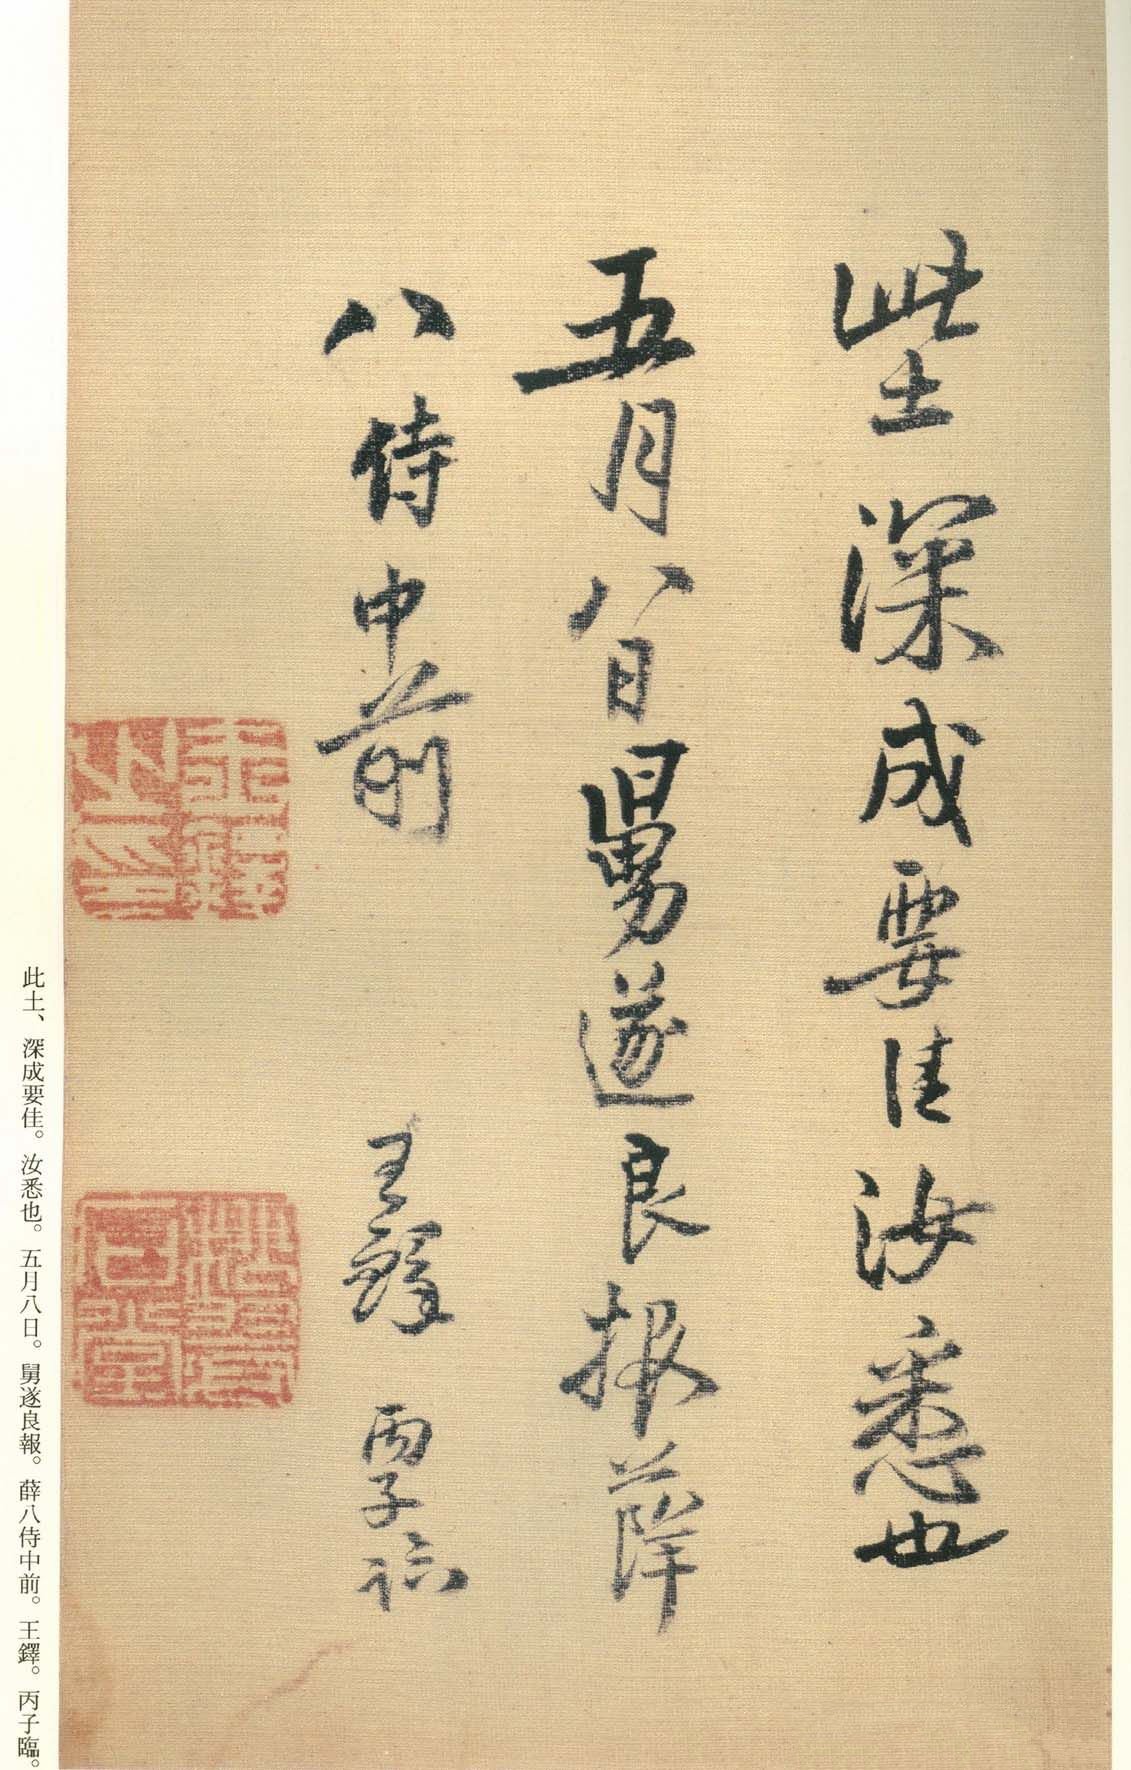 此土深成要佳汝悉也
五月八日舅遂良報薛
八侍中前 王鐸 丙子臨
王鐸之印
此土、深成要佳。汝悉也。五月八日。舅遂良報。薛八侍中前。王鐸。丙子臨。